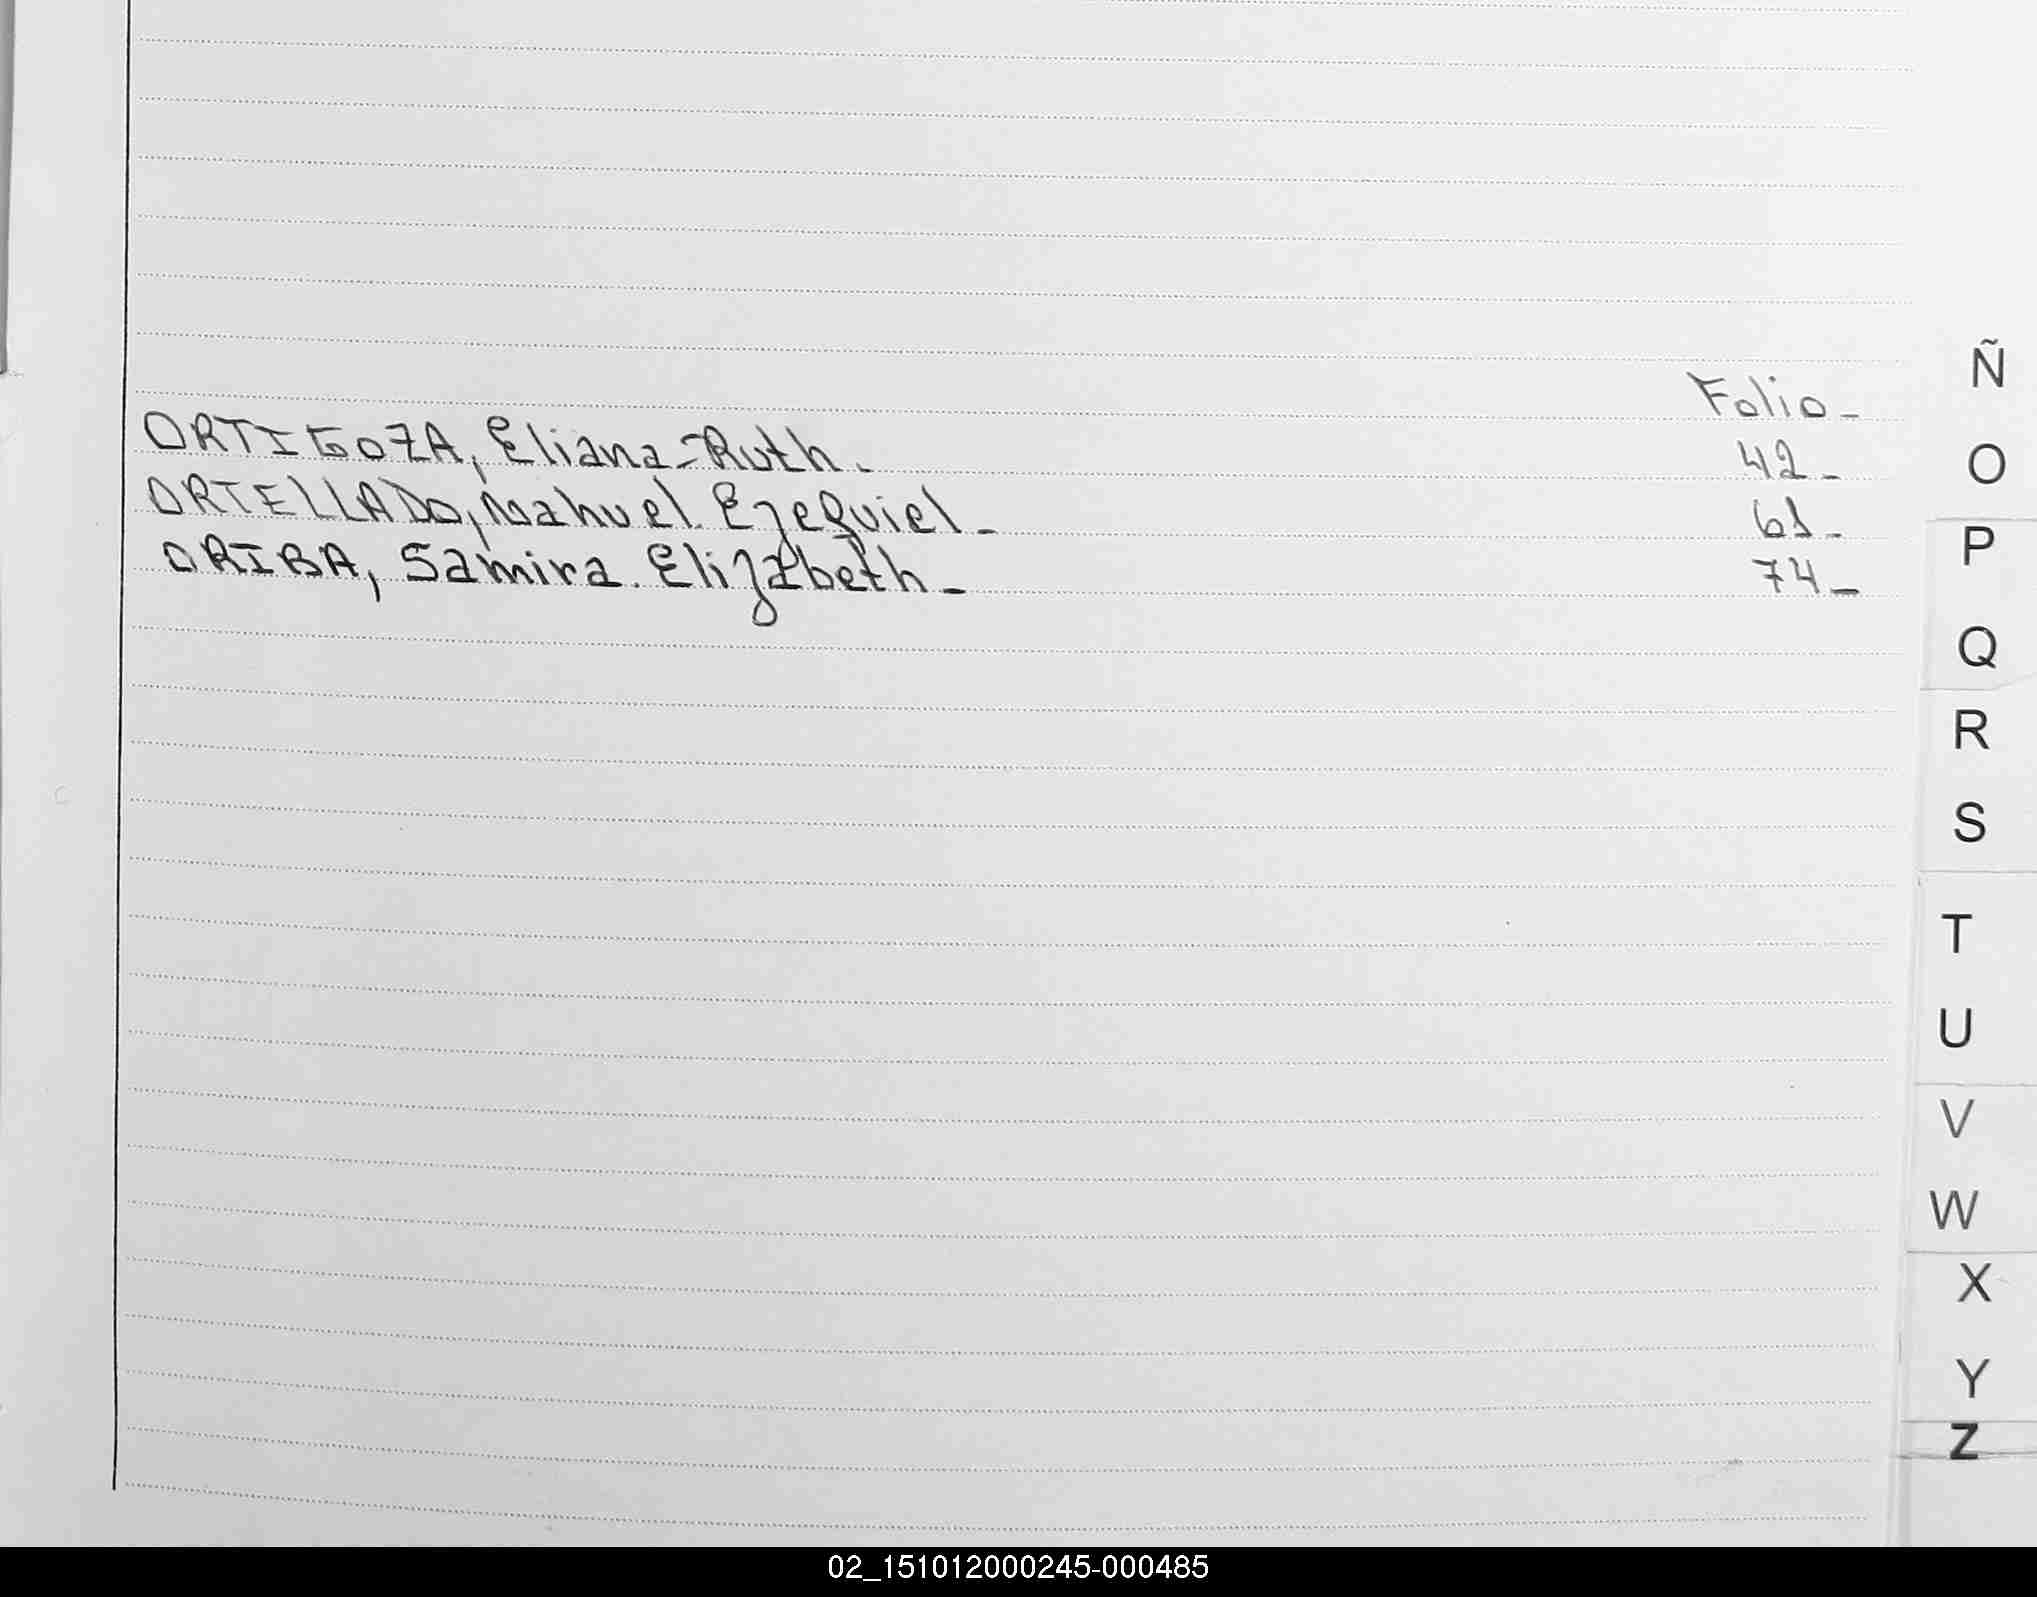 Folio-
ORTIGOZA, Eliana=Ruth. 42-
ORTELLADO, Nahuel. Ezequiel- 61-
ORIBA, Samira. Elizabeth- 74-
Ñ
O
P
Q
R
S
T
U
V
W
X
Y
Z
02_151012000245-000485